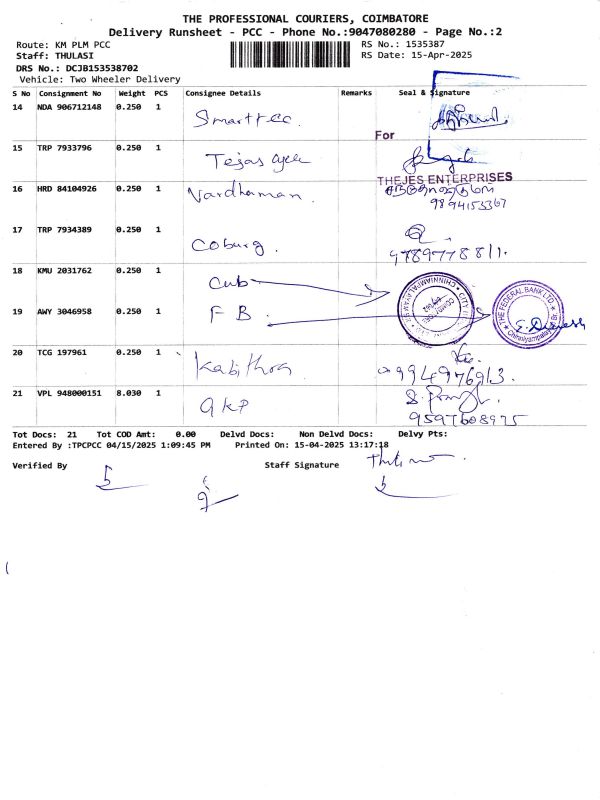 THE PROFESSIONAL COURIERS, COIMBATORE
Delivery Runsheet - PCC - Phone No.:9047080280 - Page No.:2
Route: KM PLM PCC
RS No.: 1535387
Staff: THULASI
RS Date: 15-Apr-2025
DRS No.: DCJB153538702
Vehicle: Two Wheeler Delivery
S No Consignment No Weight PCS Consignee Details Remarks Seal & Signature
14 NDA 906712148 0.250 1
For
15 TRP 7933796 0.250 1 Tejas
THEJES ENTERPRISES
16 HRD 84104926 0.250 1 Vardhaman.
9894153367
17 TRP 7934389 0.250 1 Coburg.
9789778811.
18 KMU 2031762 0.250 1 Cub
19 AWY 3046958 0.250 1 FB.
THE FEDERAL BANK LTD.
20 TCG 197961 0.250 1 Kabithra
9994976913.
21 VPL 948000151 8.030 1 GKP
9597608975
Tot Docs: 21 Tot COD Amt: 0.00 Delvd Docs: Non Delvd Docs: Delvy Pts:
Entered By :TPCPCC 04/15/2025 1:09:45 PM Printed On: 15-04-2025 13:17:18
Verified By Staff Signature